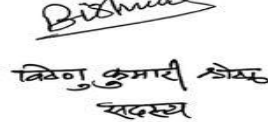 Bishnu
विष्णु कुमारी श्रेष्ठ
सदस्य